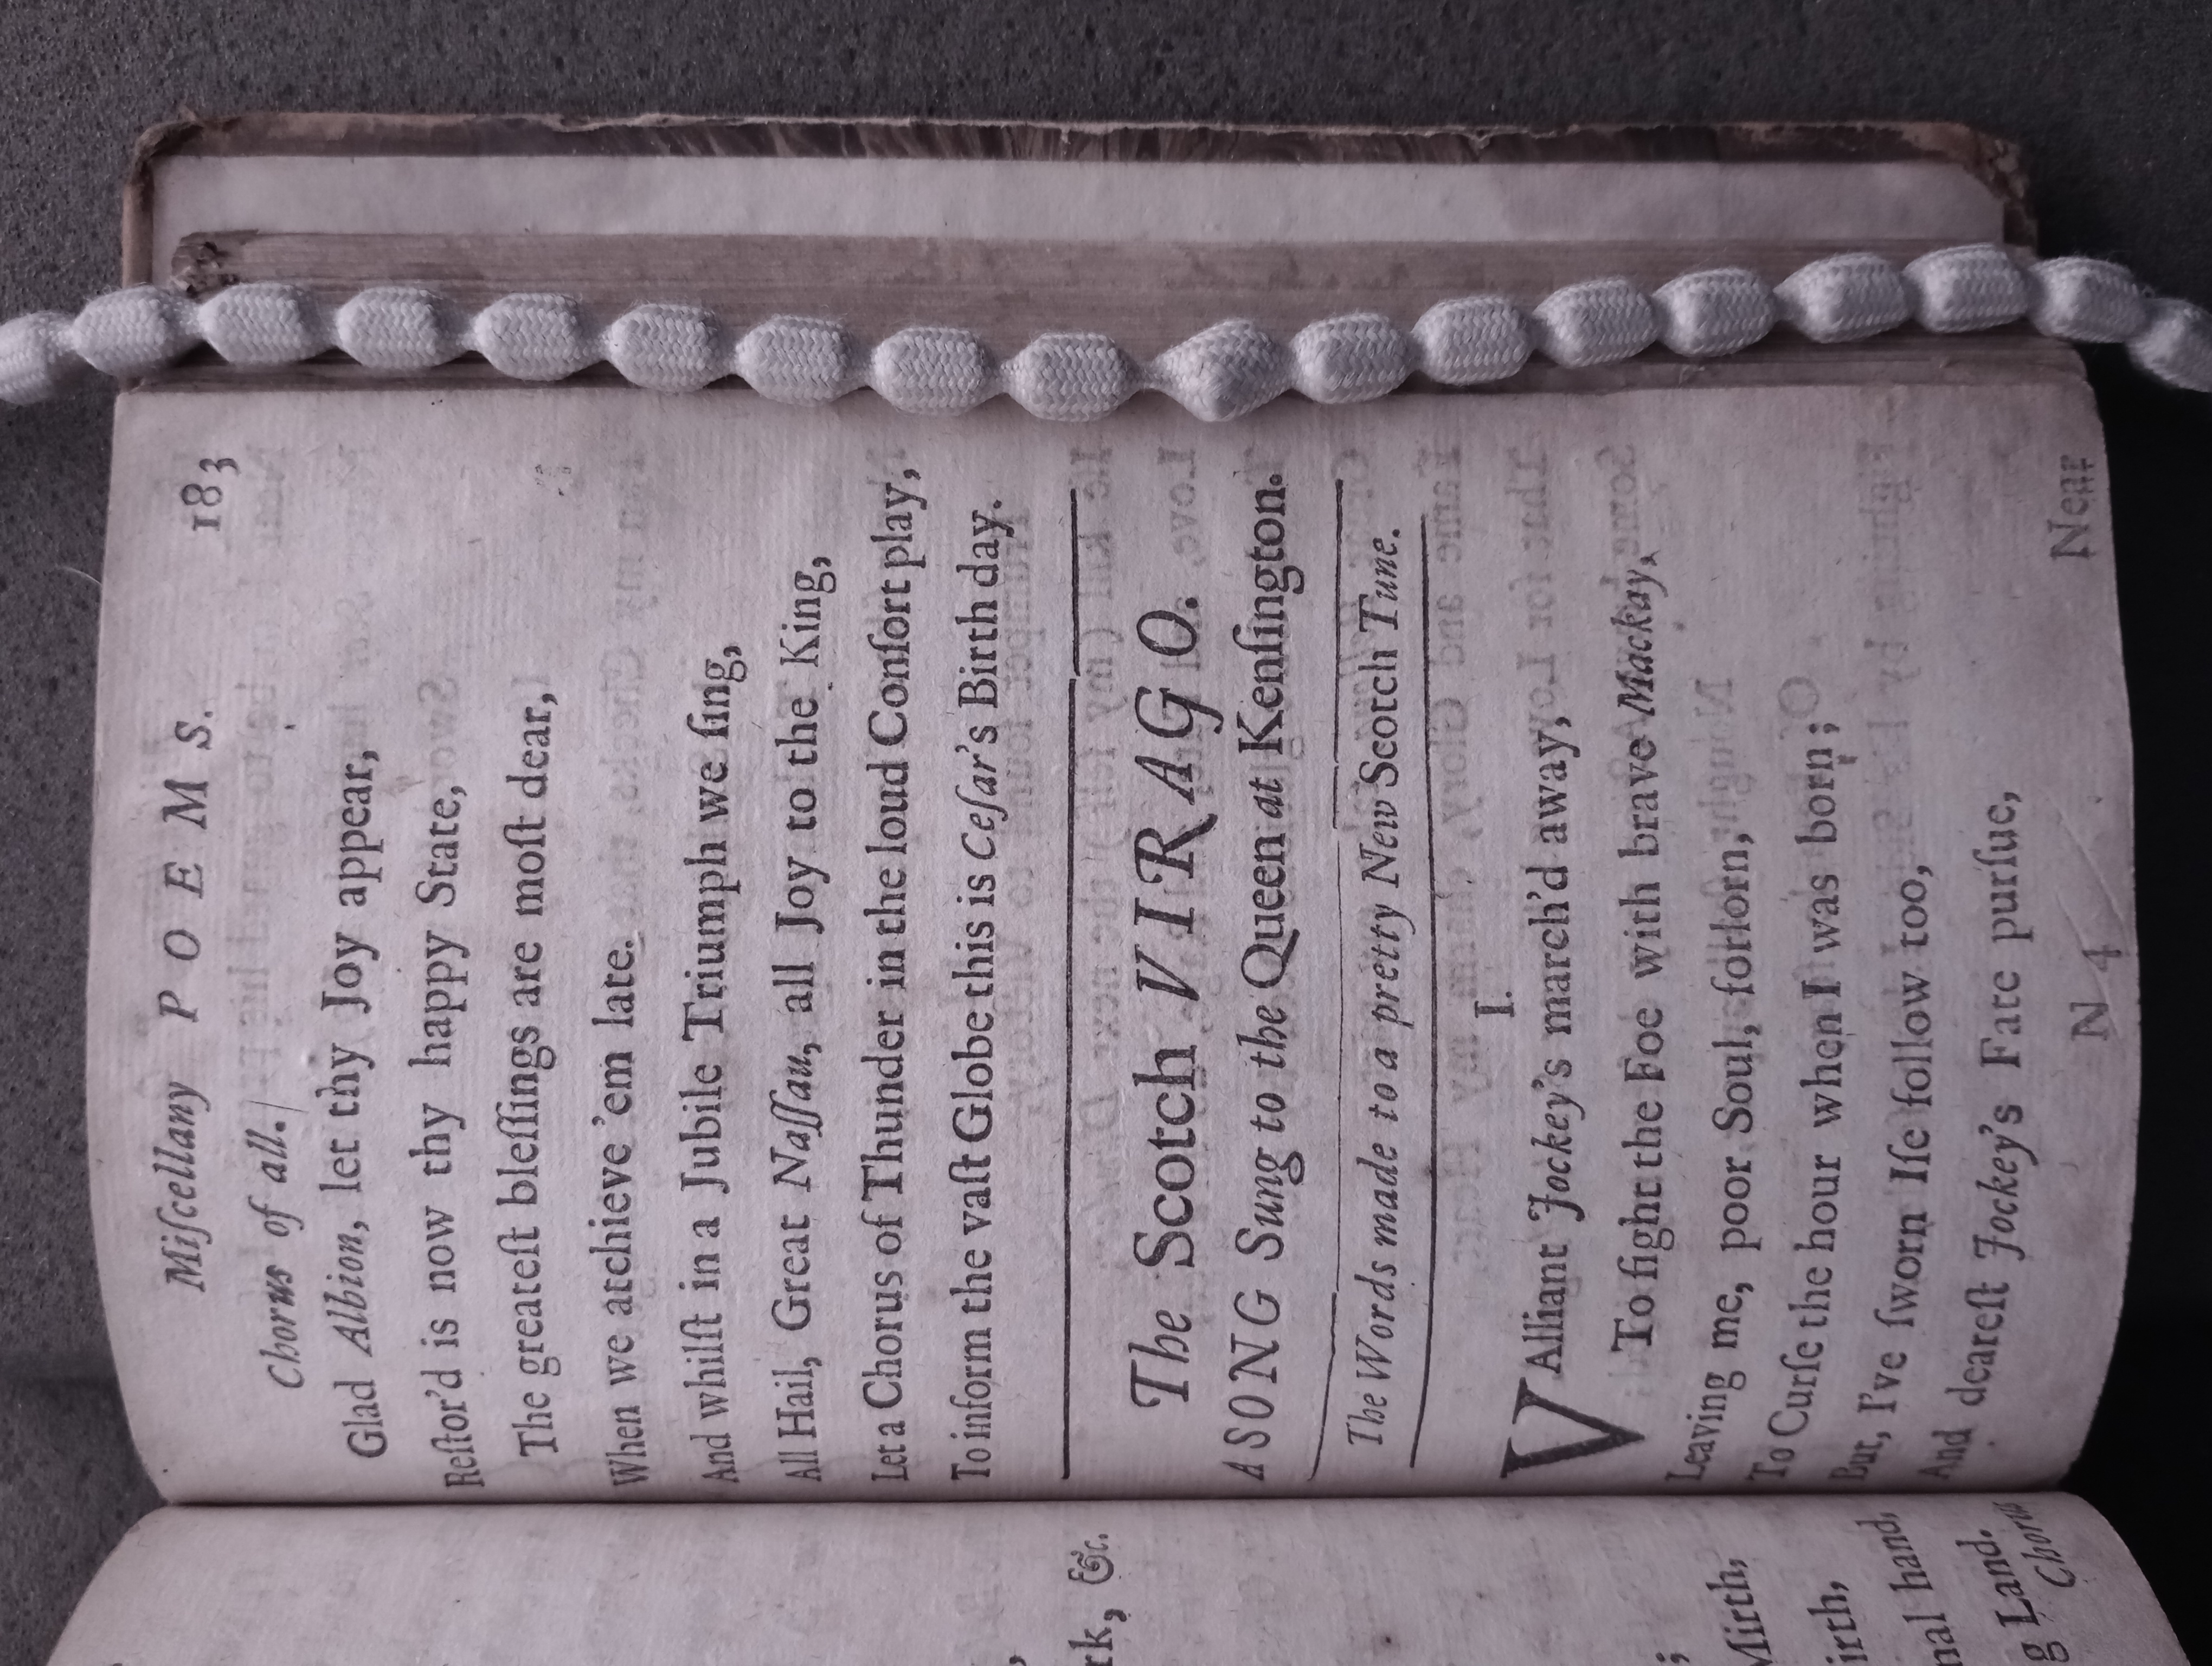 rk, &c.
Mirth,
irth,
nal hand,
g Land.
Chorus
Miſcellany POEMS. 183
Chorus of all.
Glad Albion, let thy Joy appear,
Reſtor'd is now thy happy State,
The greateſt bleſſings are moſt dear,
When we atchieve 'em late.
And whilſt in a Jubile Triumph we ſing,
All Hail, Great Naſſau, all Joy to the King,
Let a Chorus of Thunder in the loud Conſort play,
To inform the vaſt Globe this is Ceſar's Birth day.
The Scotch VIRAGO.
A SONG Sung to the Queen at Kenſington.
The Words made to a pretty New Scotch Tune.
I.
VAlliant Jockey's march'd away,
To fight the Foe with brave Mackay,
Leaving me, poor Soul, forlorn,
To Curſe the hour when I was born;
But, I've ſworn Iſe follow too,
And deareſt Jockey's Fate purſue,
N 4 Near